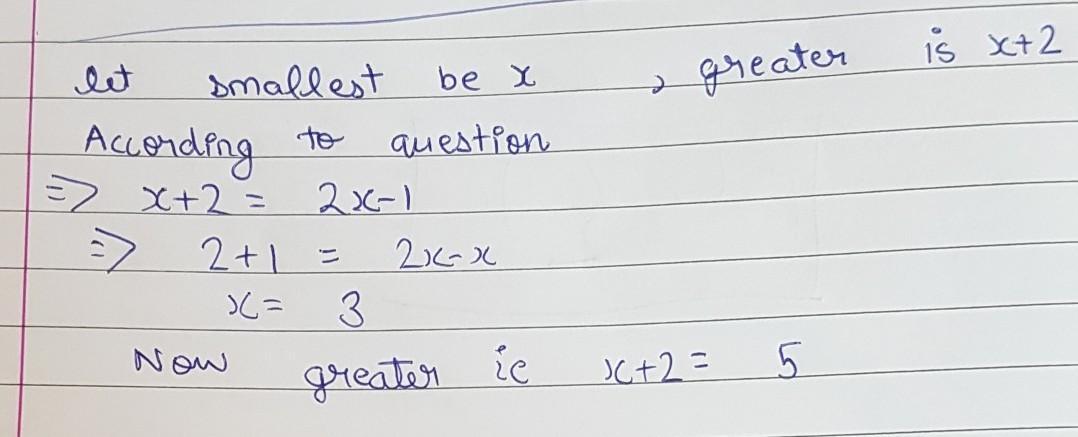 let smallest be x , greater is x+2
According to question
=> x+2 = 2x-1
=> 2+1 = 2x-x
x= 3
Now greater ie x+2 = 5